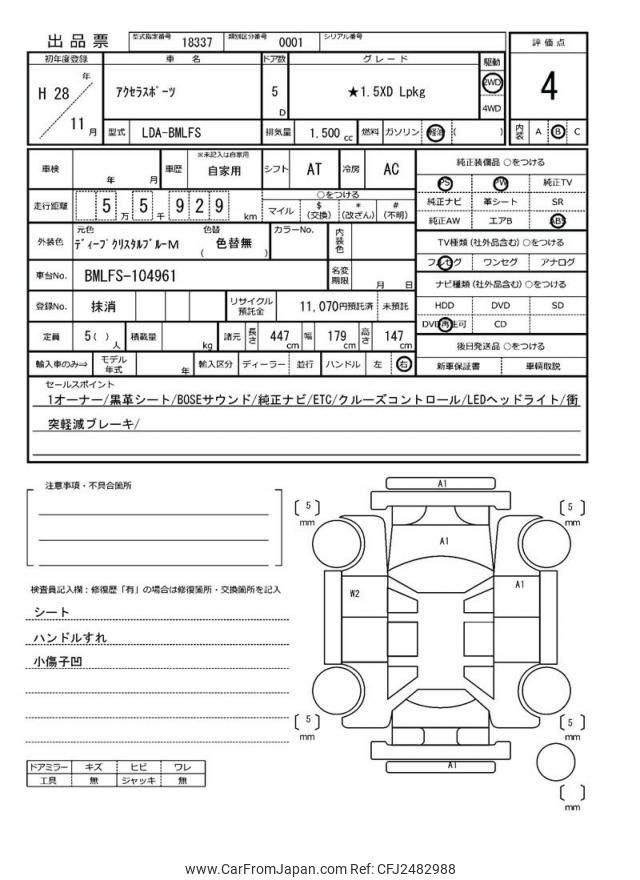 出品票 型式指定番号 18337 類別区分番号 0001 シリアル番号
初年度登録 車 名 ドア数 グレード 駆動 評価点
H 28 年 11 月 アクセラスポーツ 5 D ★1.5XD Lpkg 2WD 4WD 4
型式 LDA-BMLFS 排気量 1,500 cc 燃料 ガソリン 軽油 ( ) 内装 A B C
車検 年 月 車歴 ※未記入は自家用 自家用 シフト AT 冷房 AC
走行距離 5 万 5 千 9 2 9 km ○をつける
マイル $(交換) *(改ざん) #(不明)
外装色 元色 ディープクリスタルブルーM 色替 ( 色替無 ) カラーNo. 内装色
車台No. BMLFS-104961 名変期限 月 日
登録No. 抹消 リサイクル預託金 11,070円預託済 未預託
定員 5( ) 人 積載量 kg 諸元 長さ 447 cm 幅 179 cm 高さ 147 cm
輸入車のみ⇨ モデル年式 年 輸入区分 ディーラー 並行 ハンドル 左 右
純正装備品 ○をつける
PS PW 純正TV
純正ナビ 革シート SR
純正AW エアB ABS
TV種類 (社外品含む) ○をつける
フルセグ ワンセグ アナログ
ナビ種類 (社外品含む) ○をつける
HDD DVD SD
DVD再生可 CD
後日発送品 ○をつける
新車保証書 車輌取説
セールスポイント
1オーナー/黒革シート/BOSEサウンド/純正ナビ/ETC/クルーズコントロール/LEDヘッドライト/衝
突軽減ブレーキ/
注意事項・不具合箇所
検査員記入欄：修復歴「有」の場合は修復箇所・交換箇所を記入
シート
ハンドルすれ
小傷子凹
ドアミラー キズ ヒビ ワレ
工具 無 ジャッキ 無
A1
5 mm
5 mm
A1
W2
A1
5 mm
5 mm
A1
mm
www.CarFromJapan.com Ref: CFJ2482988